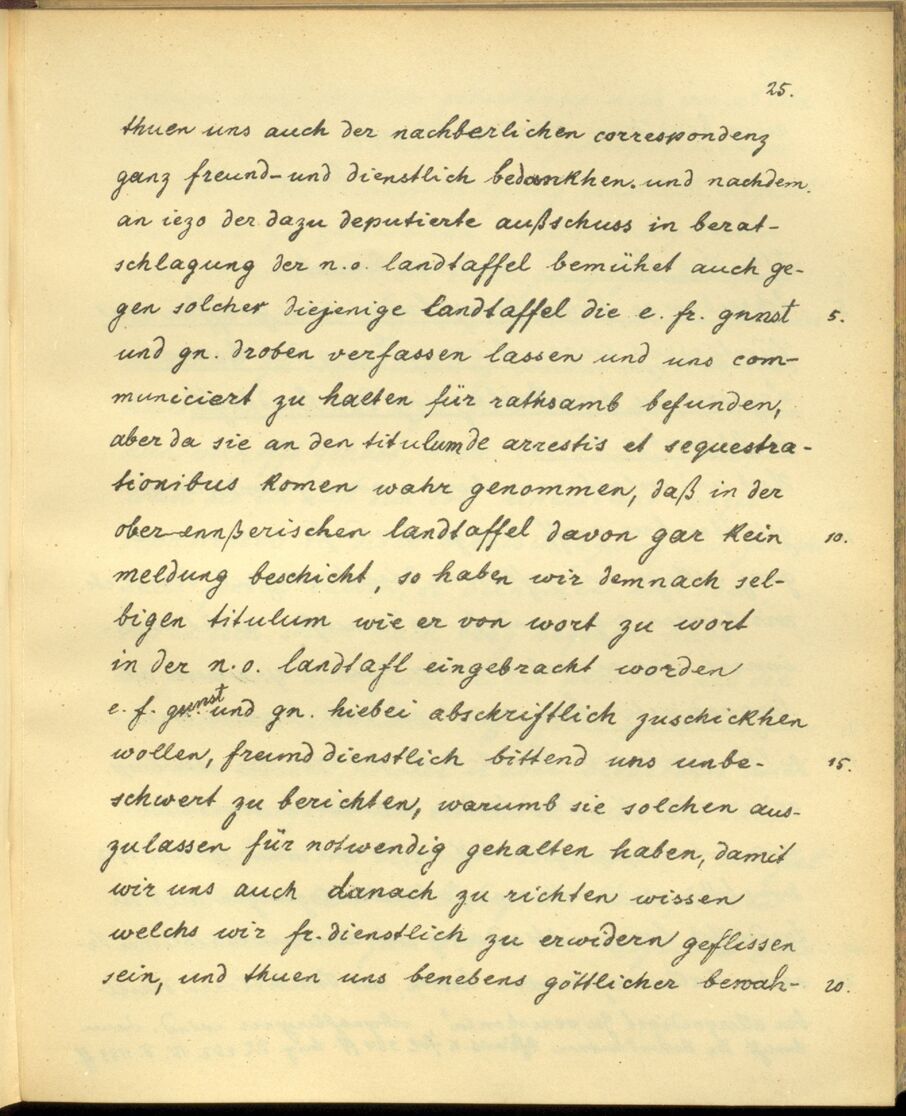 25.
thuen uns auch der nachberlichen correspondenz
ganz freund- und dienstlich bedankhen. und nachdem
an iezo der dazu deputierte außschuss in berat-
schlagung der n.o. landtaffel bemühet auch ge-
gen solcher diejenige landtaffel die e. fr. gunst 5.
und gn. droben verfassen lassen und uns com-
municiert zu halten für rathsamb befunden,
aber da sie an den titulum de arrestis et sequestra-
tionibus komen wahr genommen, daß in der
ober-ennßerischen landtaffel davon gar kein 10.
meldung beschicht, so haben wir demnach sel-
bigen titulum wie er von wort zu wort
in der n.o. landtafl eingebracht worden
e. f. gunst und gn. hiebei abschriftlich zuschickhen
wollen, freunddienstlich bittend uns unbe- 15.
schwert zu berichten, warumb sie solchen aus-
zulassen für notwendig gehalten haben, damit
wir uns auch danach zu richten wissen
welchs wir fr. dienstlich zu erwidern geflissen
sein, und thuen uns benebens göttlicher bewah- 20.